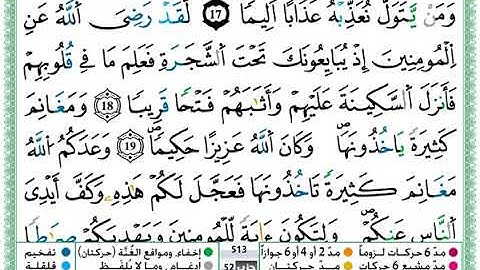 وَمَنْ يَّتَوَلَّ نُعَذِّبْهُ عَذَاباً اَلِيماً 17 لَّقَدْ رَضِيَ اَللَّهُ عَنِ
اِ۬لْمُومِنِينَ إِذْ يُبَايِعُونَكَ تَحْتَ اَ۬لشَّجَرَةِ فَعَلِمَ مَا فِي قُلُوبِهِمْ
فَأَنزَلَ اَ۬لسَّكِينَةَ عَلَيْهِمْ وَأَثَٰبَهُمْ فَتْحاً قَرِيباً 18 وَمَغَانِمَ
كَثِيرَةً يَاخُذُونَهَا وَكَانَ اَ۬للَّهُ عَزِيزاً حَكِيماً 19 وَعَدَكُمُ اُ۬للَّهُ
مَغَانِمَ كَثِيرَةً تَاخُذُونَهَا فَعَجَّلَ لَكُمْ هَٰذِهِۦ وَكَفَّ أَيْدِيَ
اَ۬لنَّاسِ عَنكُمْ وَلِتَكُونَ ءَايَةً لِّلْمُومِنِينَ وَيَهْدِيَكُمْ صِرَٰطاً
مدّ 6 حركات لزوماً مدّ 2 أو 4 أو 6 جوازاً 513 إخفاء، ومواقع الغُنَّة (حركتان) تفخيم
مدّ مشبع 6 حركات مدّ حركتان 52 إدغام، وما لا يُلفَظ قلقلة